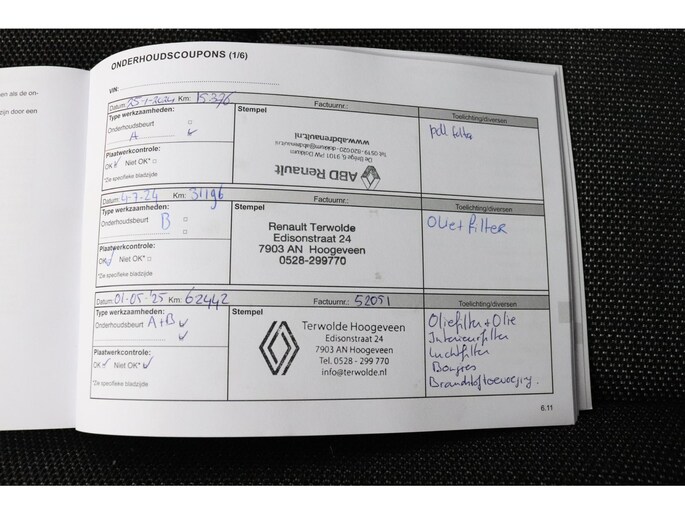 en als de on-
zijn door een
ONDERHOUDSCOUPONS (1/6)
VIN:
Datum: 25-1-2024 Km: 15376
Factuurnr.:
Toelichting/diversen
Type werkzaamheden:
Stempel
Onderhoudsbeurt
A
Plaatwerkcontrole:
OK Niet OK*
*De specifieke bladzijde
ABD Renault
De Brêge 6, 9101 PW Dokkum
Tel. 0519-820020 - dokkum@abdrenault.nl
www.abdrenault.nl
poll filter
Datum: 4-7-24 Km: 31196
Factuurnr.:
Toelichting/diversen
Type werkzaamheden:
Stempel
Onderhoudsbeurt B
Plaatwerkcontrole:
OK Niet OK*
*De specifieke bladzijde
Renault Terwolde
Edisonstraat 24
7903 AN Hoogeveen
0528-299770
Olie+filter
Datum: 01-05-'25 Km: 62442
Factuurnr.: 52051
Toelichting/diversen
Type werkzaamheden:
Stempel
Onderhoudsbeurt A+B
Plaatwerkcontrole:
OK Niet OK*
*De specifieke bladzijde
Terwolde Hoogeveen
Edisonstraat 24
7903 AN Hoogeveen
Tel. 0528 - 299 770
info@terwolde.nl
Oliefilter+Olie
Interieurfilter
Luchtfilter
Bougies
Brandstoftoevoeging.
6.11